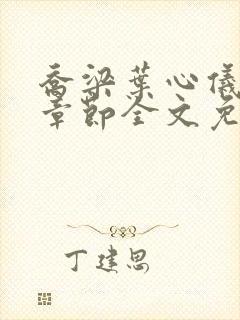 乔梁叶心仪
章节全文免
丁建思